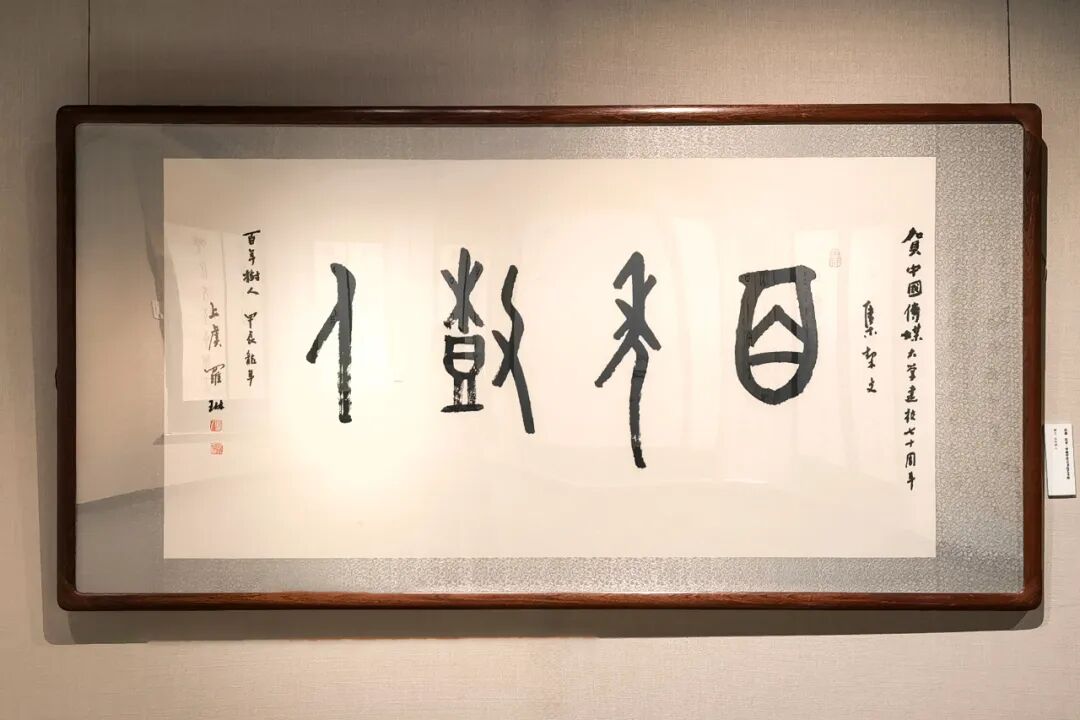 賀中國傳媒大学建校七十周年
集契文
百年樹人
百年樹人 甲辰龍年
上虞羅琳